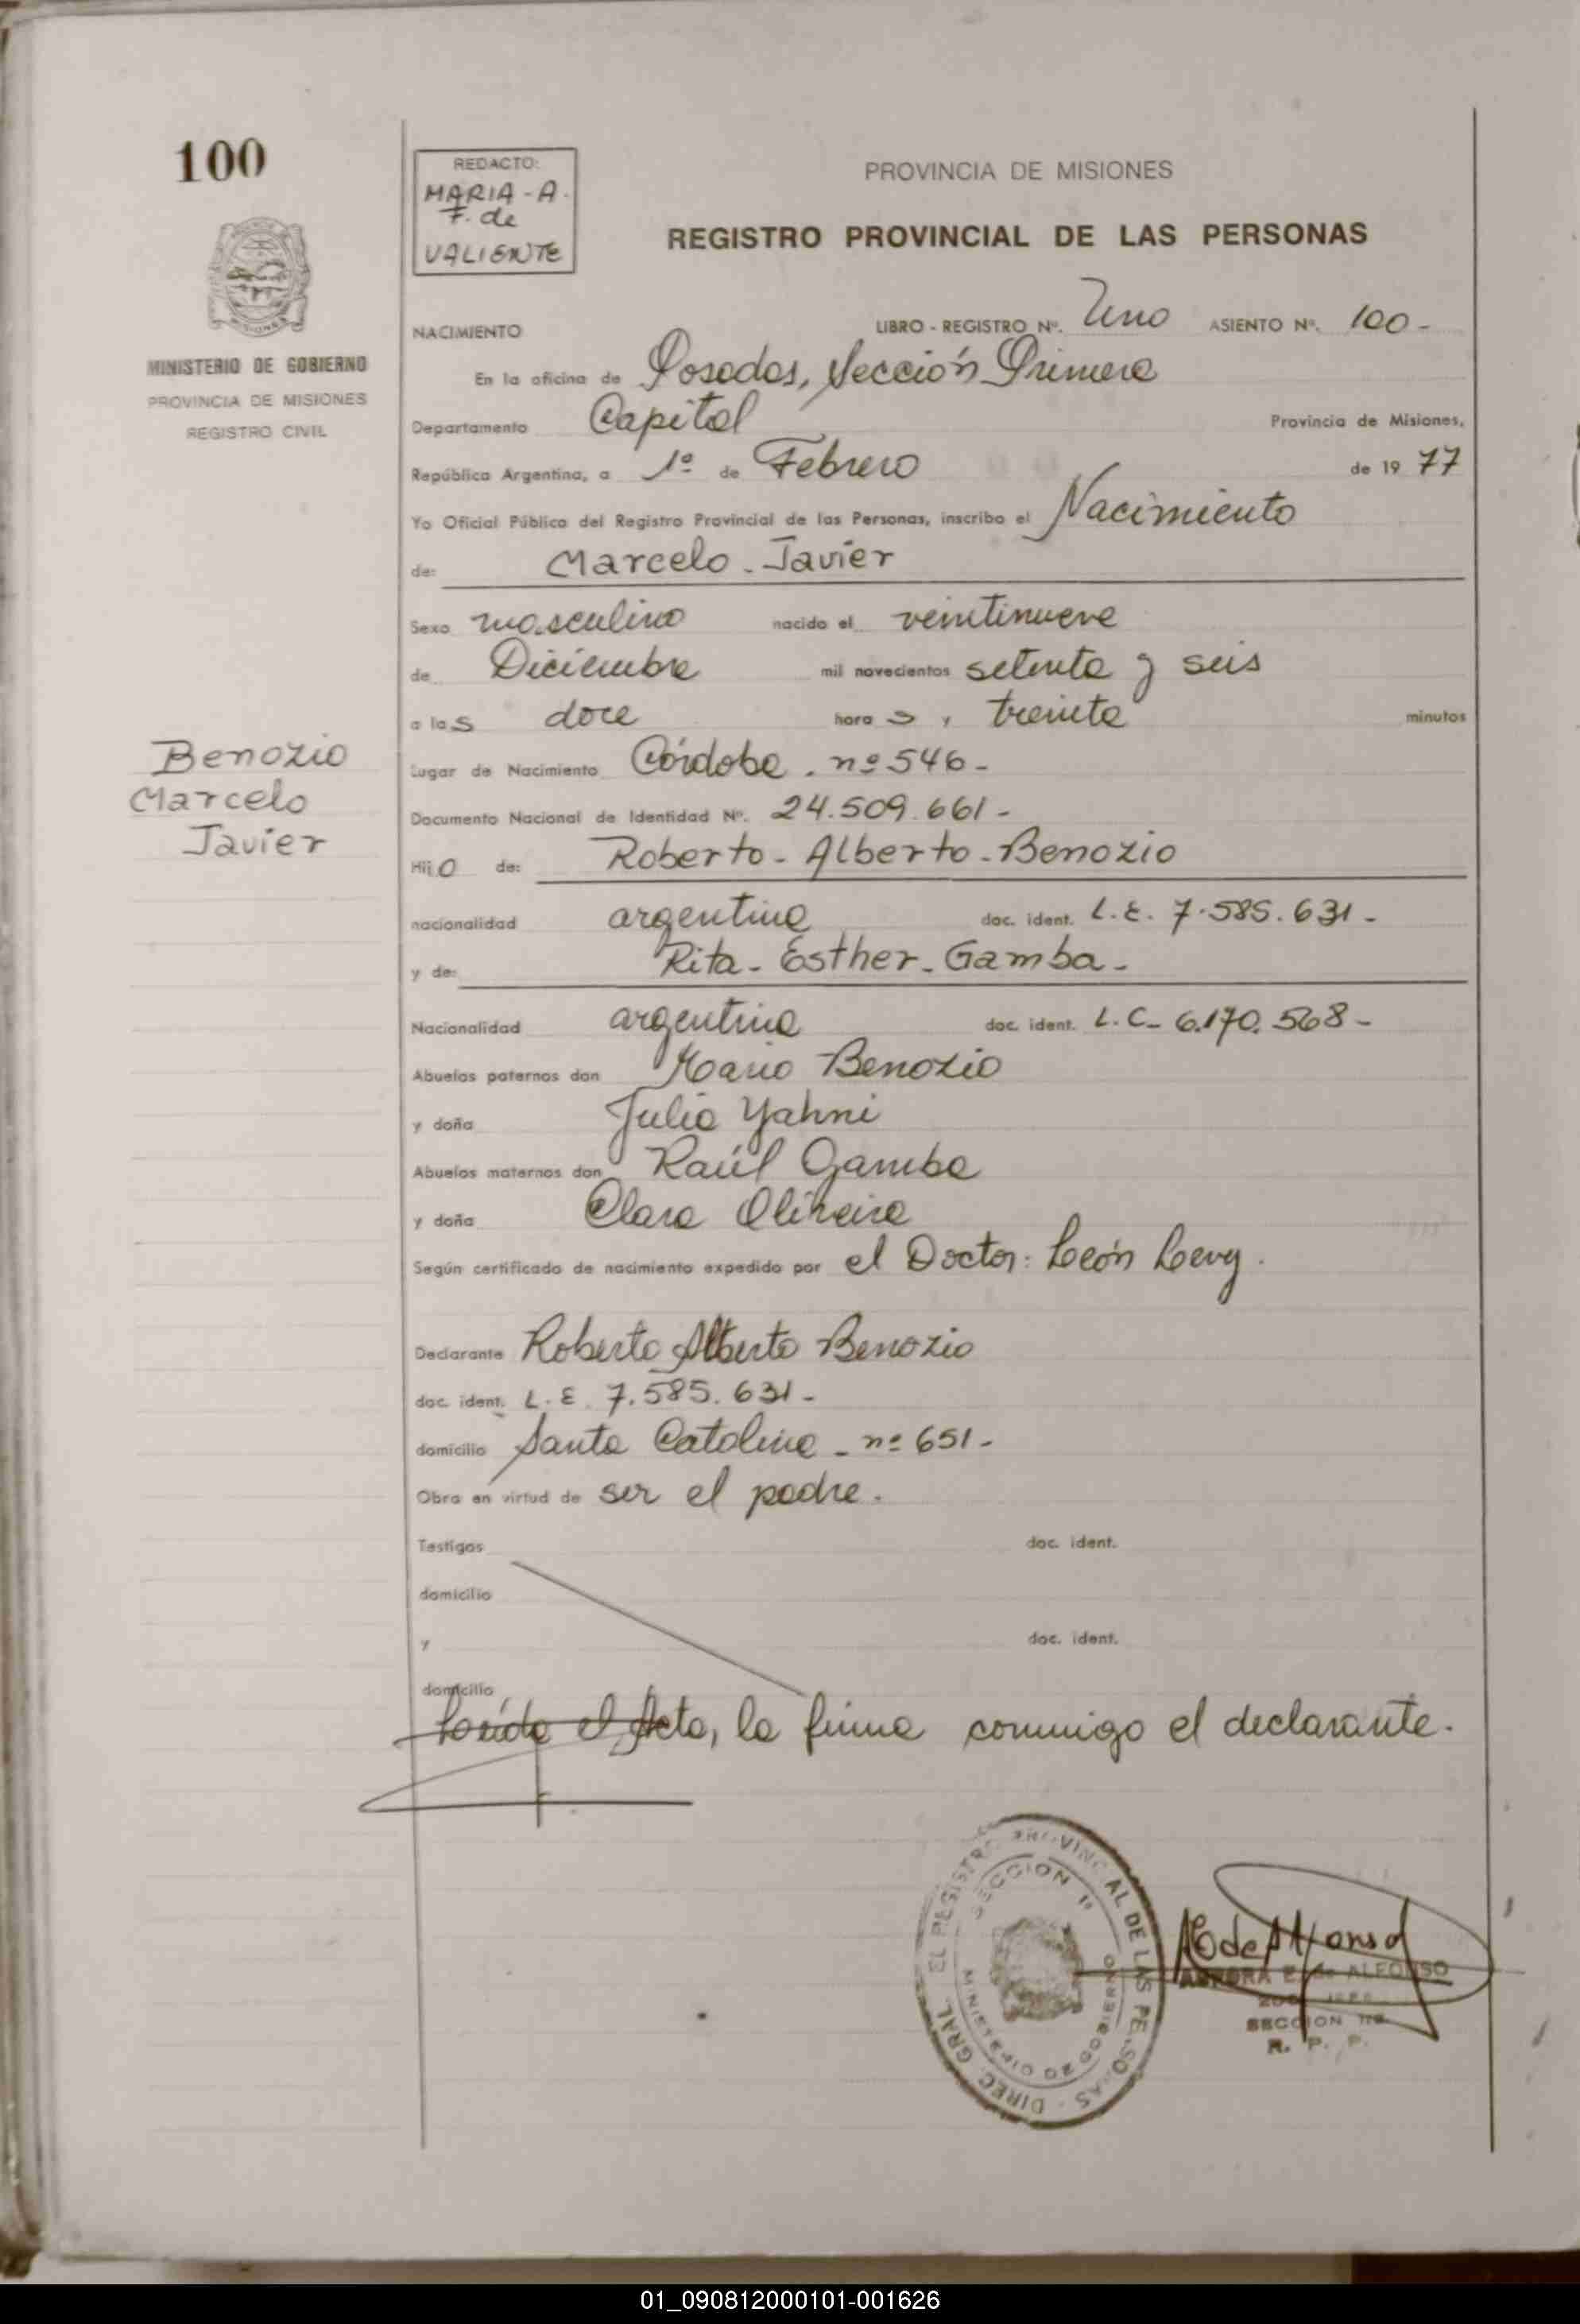 100
REDACTO:
MARIA-A.
F. de
VALIENTE
PROVINCIA DE MISIONES
REGISTRO PROVINCIAL DE LAS PERSONAS
MINISTERIO DE GOBIERNO
PROVINCIA DE MISIONES
REGISTRO CIVIL
NACIMIENTO LIBRO - REGISTRO Nº. Uno ASIENTO Nº. 100-
En la oficina de Posadas, Sección Primera
Departamento Capital Provincia de Misiones,
República Argentina, a 1º de Febrero de 1977
Yo Oficial Público del Registro Provincial de las Personas, inscribo el Nacimiento
de: Marcelo - Javier
Sexo masculino nacido el veintinueve
de Diciembre mil novecientos setenta y seis
a las doce horas y treinta minutos
Benozio
Marcelo
Javier
Lugar de Nacimiento Córdoba. nº 546-
Documento Nacional de Identidad Nº. 24.509.661-
Hijo de: Roberto - Alberto - Benozio
nacionalidad argentina doc. ident. L.E. 7.585.631-
y de: Rita - Esther - Gamba-
Nacionalidad argentina doc. ident. L.C- 6.170.568-
Abuelos paternos don Mario Benozio
y doña Julia Yahni
Abuelos maternos don Raúl Gamba
y doña Clara Oliveira
Según certificado de nacimiento expedido por el Doctor: León Levy.
Declarante Roberto Alberto Benozio
doc. ident. L.E. 7.585.631-
domicilio Santa Catalina - nº 651-
Obra en virtud de ser el padre.
Testigos doc. ident.
domicilio
y doc. ident.
domicilio
Leída el Acta, la firma conmigo el declarante.
DIREC. GRAL. EL REGISTRO PROVINCIAL DE LAS PERSONAS
SECCION 1ª
MINISTERIO DE GOBIERNO
de Alfonso
AURORA E. de ALFONSO
2do JEFE
SECCION 1ra
R. P. P.
01_090812000101-001626